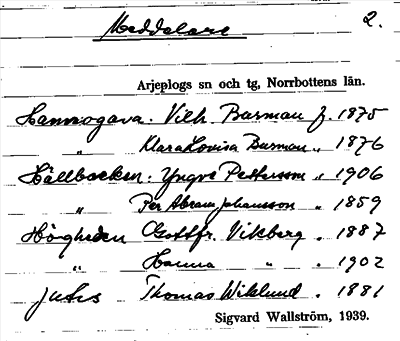 Meddelare 2.
Arjeplogs sn och tg, Norrbottens län.
Hannogava. Vilh. Burman f. 1875
" Klara Lovisa Burman " 1876
Hällbacken: Yngve Pettersson " 1906
" Per Abram Johansson " 1859
Högheden Gottfr. Vikberg . 1887
" Hanna " . 1902
Jutis Thomas Wiklund . 1881
Sigvard Wallström, 1939.